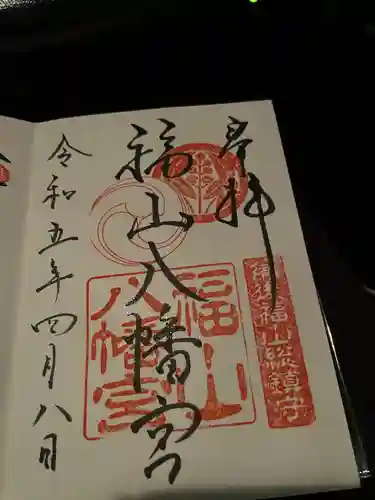 奉拝
備後福山総鎮守
福山八幡宮
福山
八幡宮
令和五年四月八日